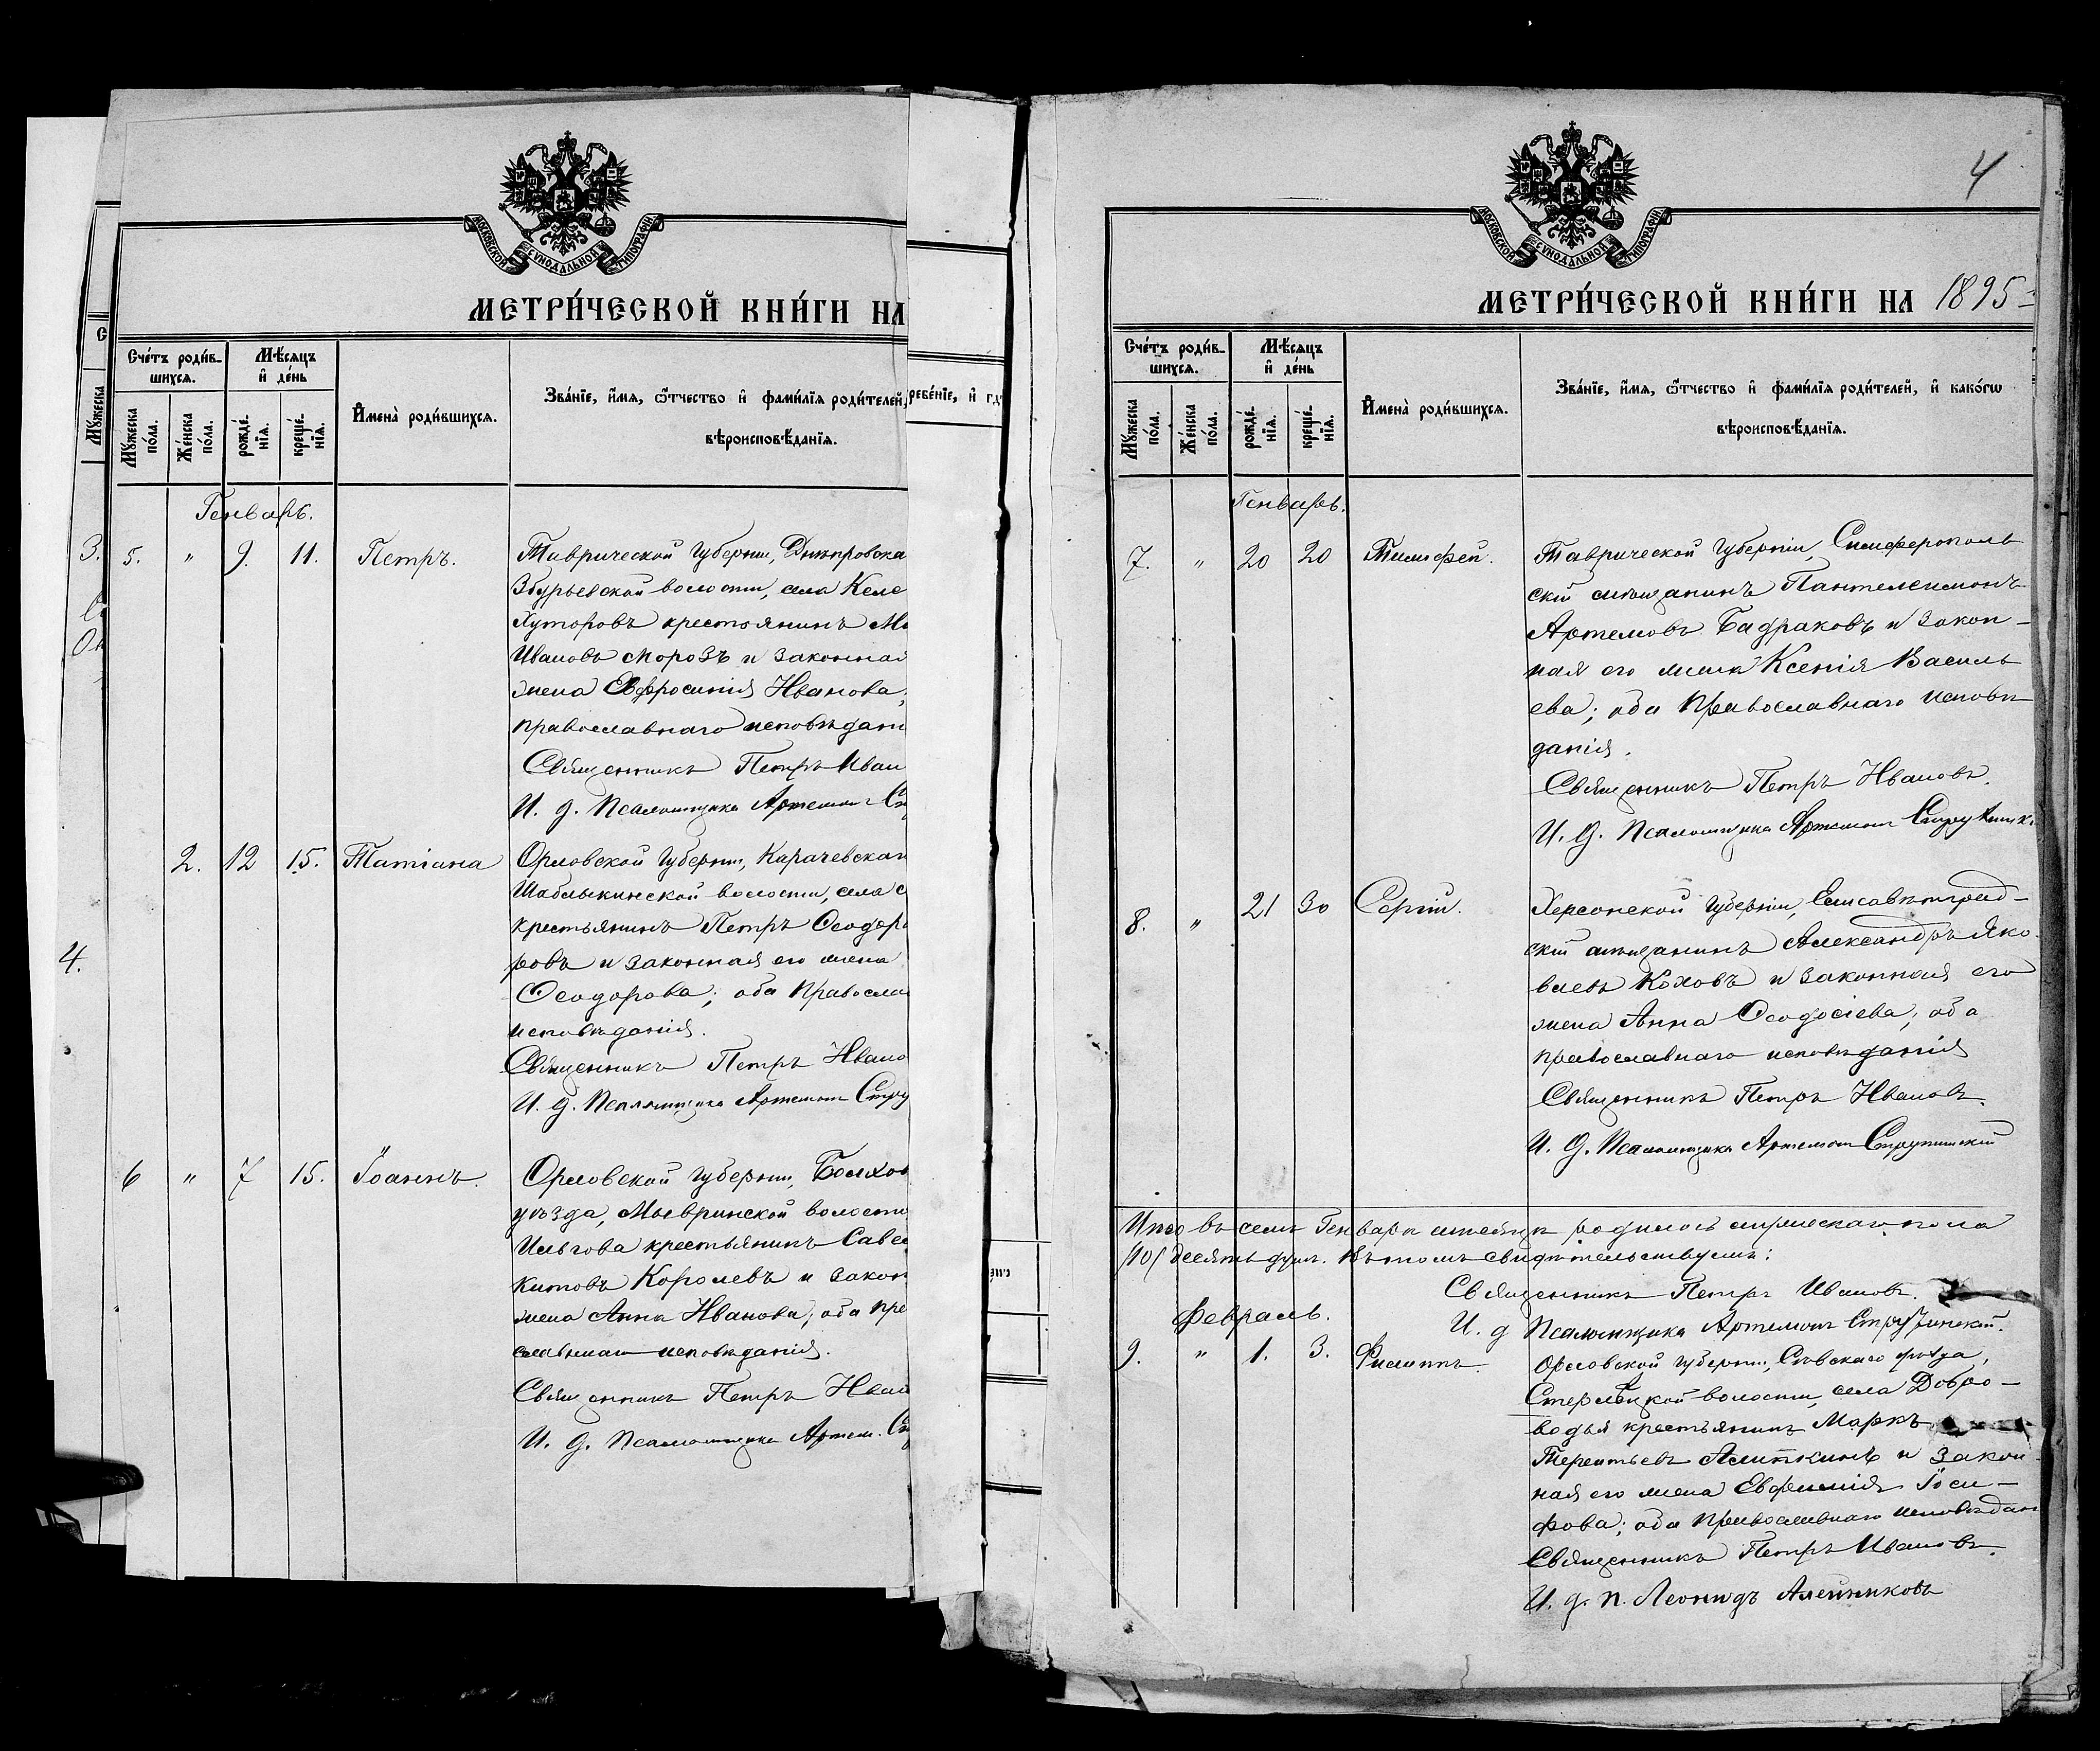 МОСКОВСКОЙ СѴНОДАЛЬНОЙ ТИПОГРАФІИ
МЕТРИ́ЧЕСКОЙ КНИ́ГИ НА
Сче́тъ роди́в-
шихся.
Мѣ́сяцъ
и҆ де́нь
Мꙋ́жеска по́ла.
Же́нска по́ла.
рожде́нїя.
креще́нїя.
И҆мена̀ роди́вшихся.
Зва́нїе, и҆́мя, ѻ҆́тчество и҆ фами́лїя роди́телей,
вѣроисповѣ́данїя.
Генварь.
3.
5. " 9. 11. Петръ.
Таврической губерніи, Днѣпровска
Збурьевской волости, села Келе
Хуторовъ крестьянинъ
Ивановъ Морозъ и законная
жена Евфросинія Иванова;
православнаго исповѣдані
Священникъ Петръ Иван
И. д. Псаломщика Артемон
2. 12 15. Татіана
Орловской губерніи, Карачевскаг
Шаблыкинской волости, села
крестьянинъ Петръ Ѳеодор
ровъ и законная его жена
Ѳеодорова; оба Правосла
исповѣданія.
Священникъ Петръ Ивано
И. д. Псаломщика Артемон Стру
4.
6 " 7 15. Іоаннъ.
Орловской губерніи, Болхов
уѣзда, волости
крестьянинъ Саве
китовъ Королевъ и закон
жена Анна Иванова; оба пра
славнаго исповѣданія.
Священникъ Петръ Иван
И. д. Псаломщика Артем.
ребе́нїе, и҆ гд
4
МОСКОВСКОЙ СѴНОДАЛЬНОЙ ТИПОГРАФІИ
МЕТРИ́ЧЕСКОЙ КНИ́ГИ НА 1895
Сче́тъ роди́в-
шихся.
Мѣ́сяцъ
и҆ де́нь
Мꙋ́жеска по́ла.
Же́нска по́ла.
рожде́нїя.
креще́нїя.
И҆мена̀ роди́вшихся.
Зва́нїе, и҆́мя, ѻ҆́тчество и҆ фами́лїя роди́телей, и҆ како́гѡ
вѣроисповѣ́данїя.
Генварь.
7. " 20 20 Тимофей.
Таврической губерніи, Симферополь
скій мѣщанинъ Пантелеимонъ
Артемовъ Бадраковъ и закон-
ная его жена Ксенія Василь
ева; оба Православнаго исповѣ
данія.
Священникъ Петръ Ивановъ.
И. д. Псаломщика Артемон
8. " 21 30 Сергій.
Херсонской губерніи, Елисаветград-
скій мѣщанинъ Александръ Яко
влевъ Коховъ и законная его
жена Анна Ѳеодосіева; оба
православнаго исповѣданія
Священникъ Петръ Ивановъ.
И. д. Псаломщика Артемон Струтинскій
Итого въ семъ Генварѣ мѣсяцѣ родилось мужескаго пола
/10/ десять душъ. Въ томъ свидѣтельствуемъ:
Священникъ Петръ Ивановъ.
И. д Псаломщика Артемонъ Струтинскій.
Февраль.
9. " 1. 3. Филиппъ
Орловской губерніи, Сѣвскаго уѣзда,
волости, села Добро-
водья крестьянинъ Маркъ
Терентьевъ Алиткинъ и закон
ная его жена Евфимія Іоси-
фова; оба Православнаго исповѣдан
Священникъ Петръ Ивановъ.
И. д. п. Леонидъ Алейниковъ